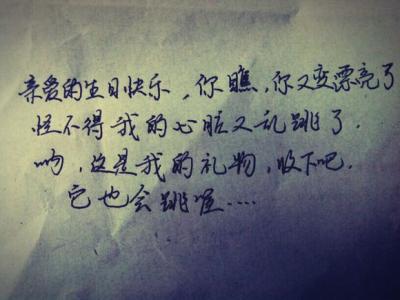 亲爱的生日快乐，你瞧，你又变漂亮了
怪不得我的心脏又乱跳了．
哟，这是我的礼物，收下吧．
它也会跳喔....